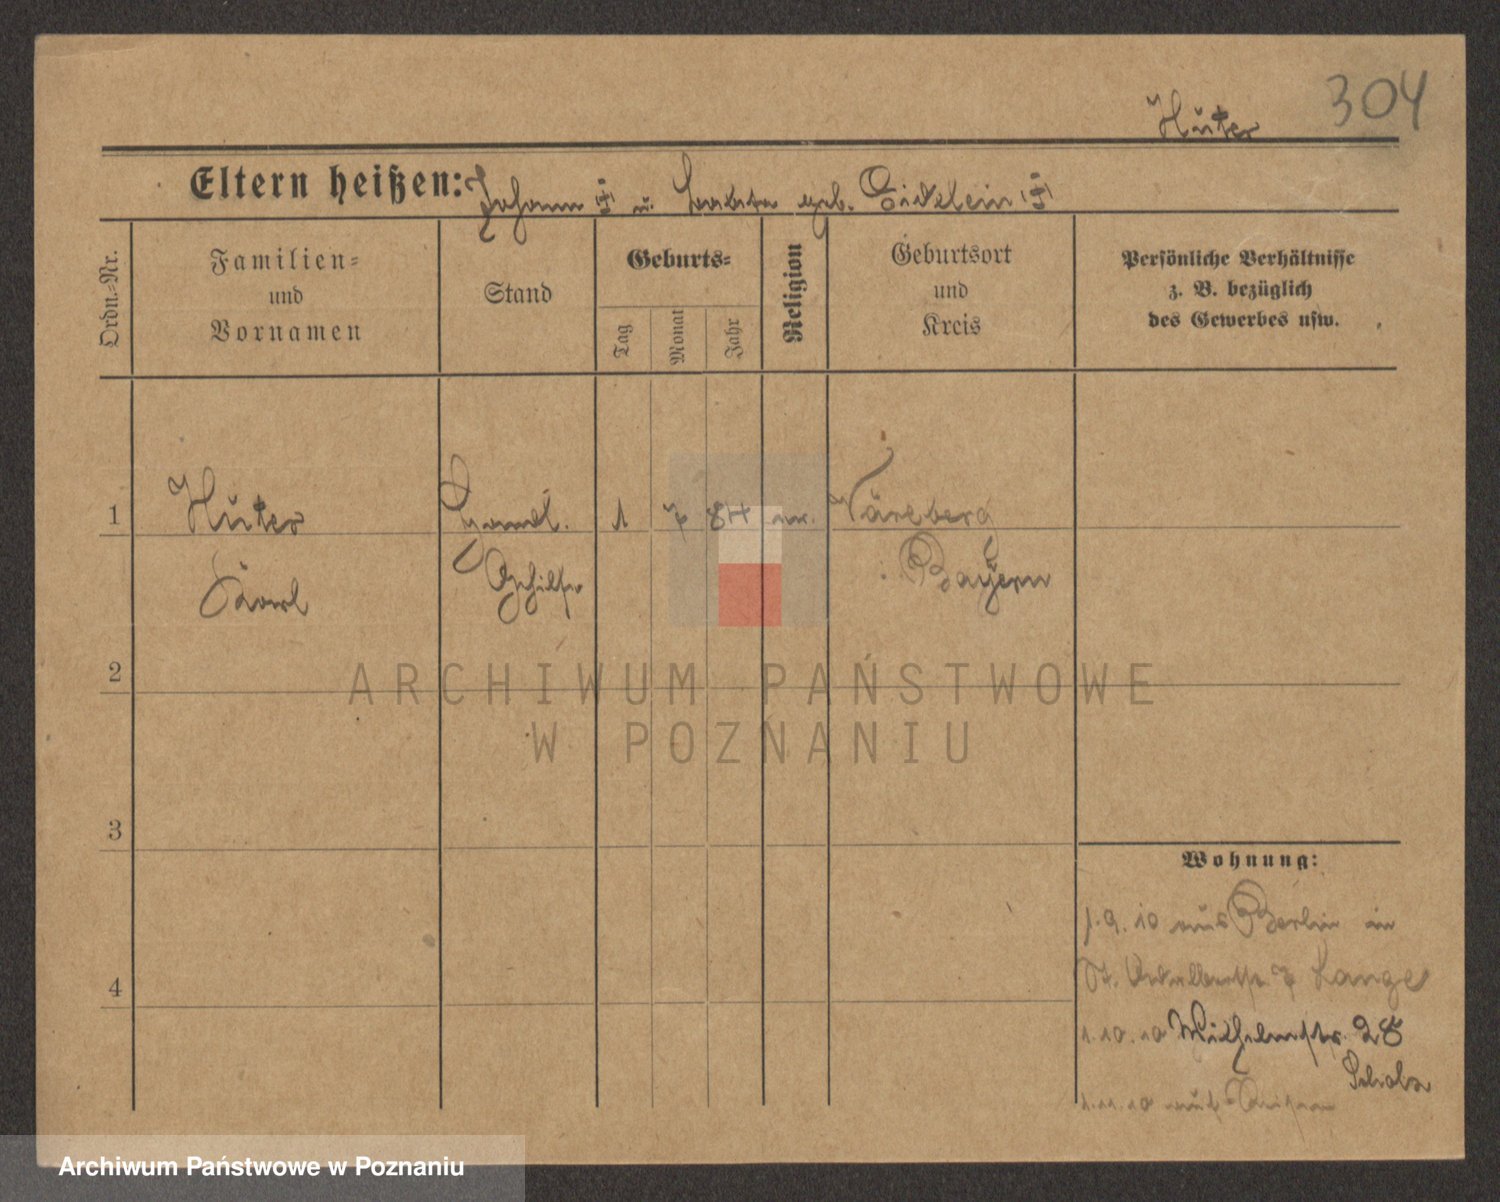 304
Huter
Eltern heißen: Johann (†) u. geb. Eidelein (†)
Ordn.-Nr.
Familien-
und
Vornamen
Stand
Geburts-
Tag
Monat
Jahr
Religion
Geburtsort
und
Kreis
Persönliche Verhältnisse
z. B. bezüglich
des Gewerbes usw.
1
Huter
Handl.
1
7
84
Bayern
Karl
Gehilfe
2
3
4
Wohnung:
1.9.10 aus Berlin in
St. 7 Lange
1.10.10 Wilhelmstr. 28
Scholz
1.11.10
ARCHIWUM PAŃSTWOWE
W POZNANIU
Archiwum Państwowe w Poznaniu